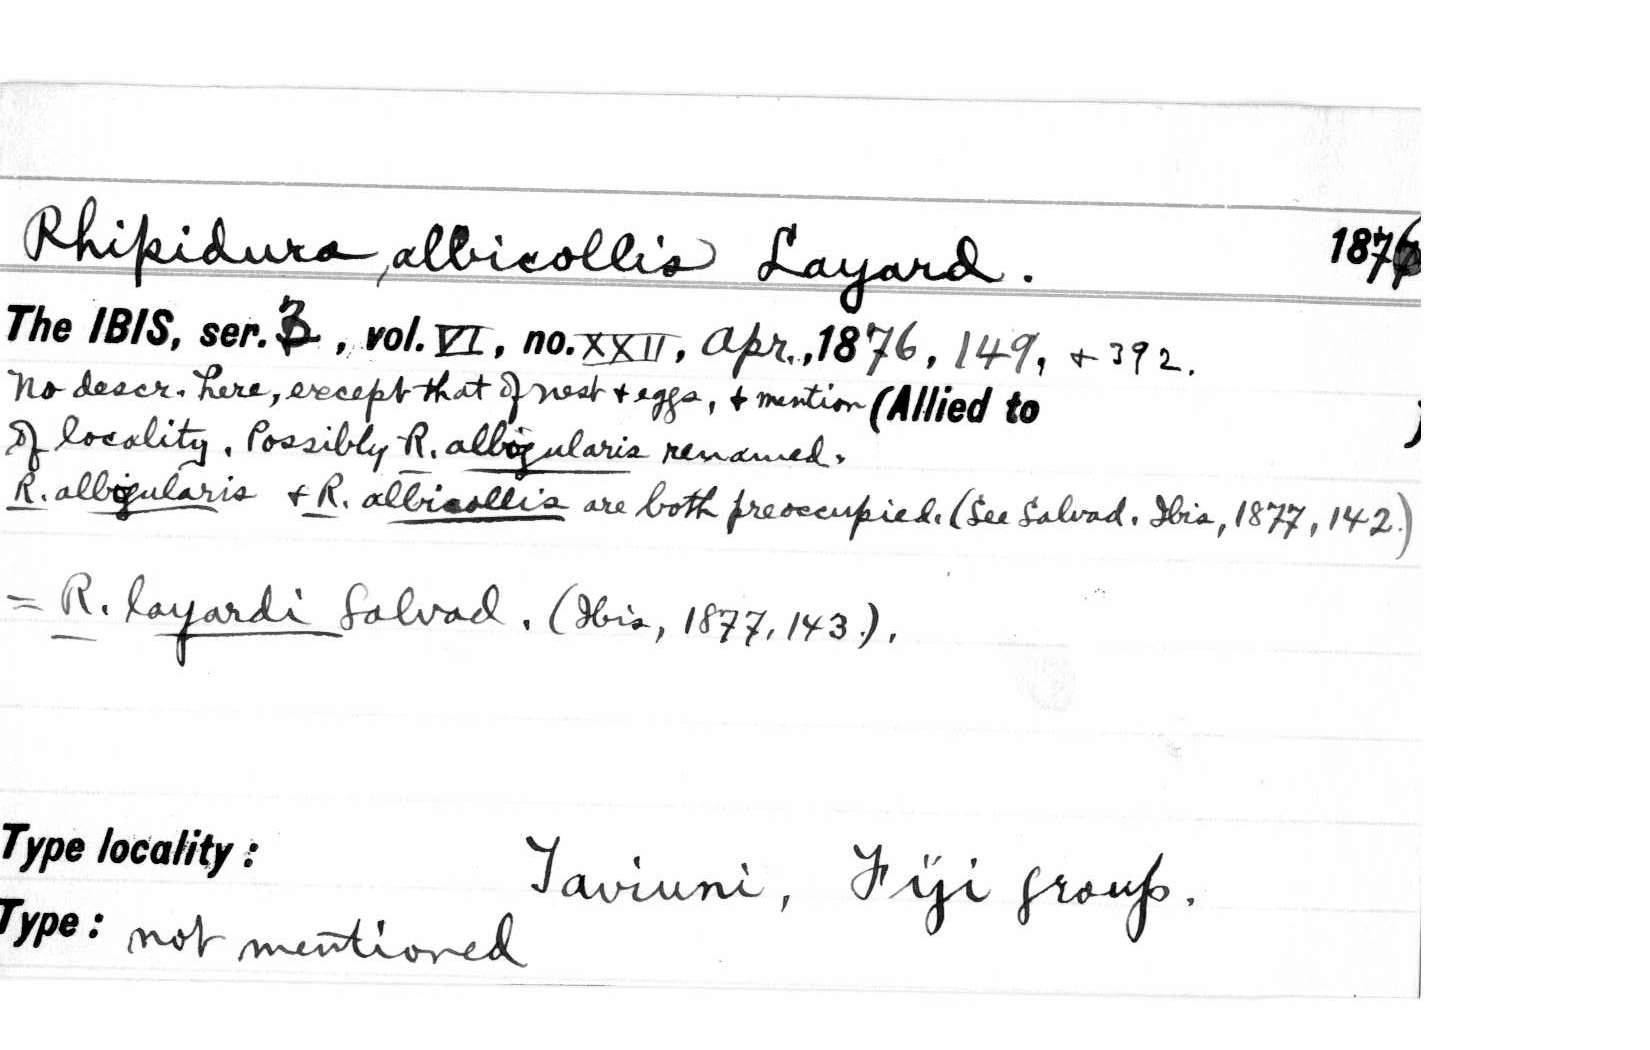 Rhipidura albicollis Layard. 1876
The IBIS, ser. 3, vol. VI, no. XXII, Apr., 1876, 149, + 392.
No descr. here, except that of nest + eggs, + mention (Allied to )
of locality. Possibly R. albigularis renamed.
R. albigularis + R. albicollis are both preoccupied. (See Salvad. Ibis, 1877, 142.)
= R. layardi Salvad. (Ibis, 1877, 143.).
Type locality: Taviuni, Fiji group.
Type: not mentioned